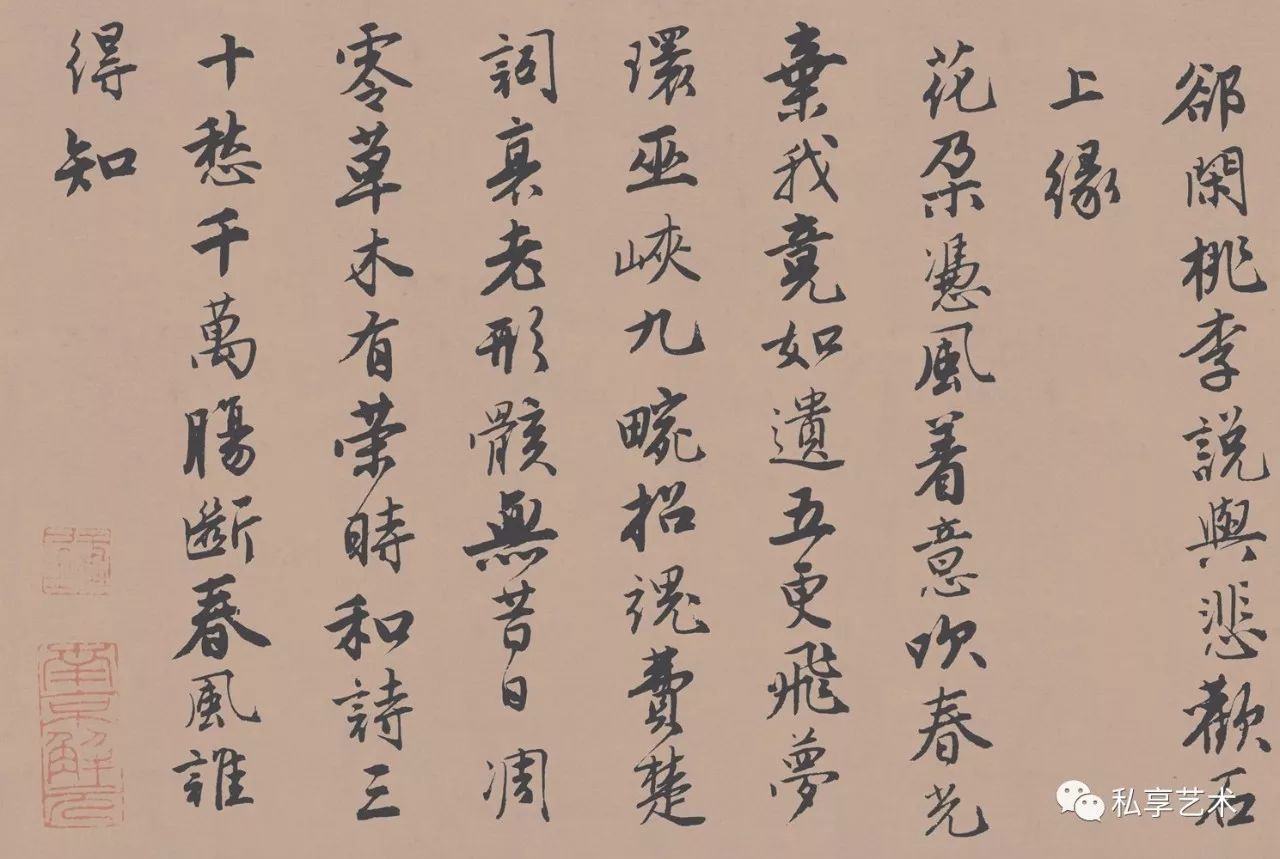 郤閑桃李說與悲歡石
上緣
花朵憑風着意吹春光
棄我竟如遺五更飛夢
環巫峽九畹招魂費楚
詞衰老形骸無昔日凋
零草木有榮時和詩三
十愁千萬腸斷春風誰
得知
南京解元
私享艺术